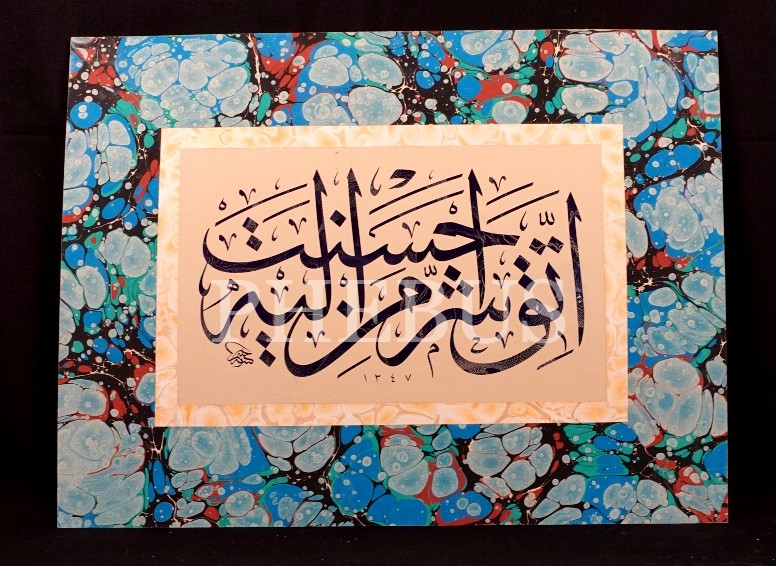 اتق شر من احسنت اليه
١٣٤٧
PHEBUS